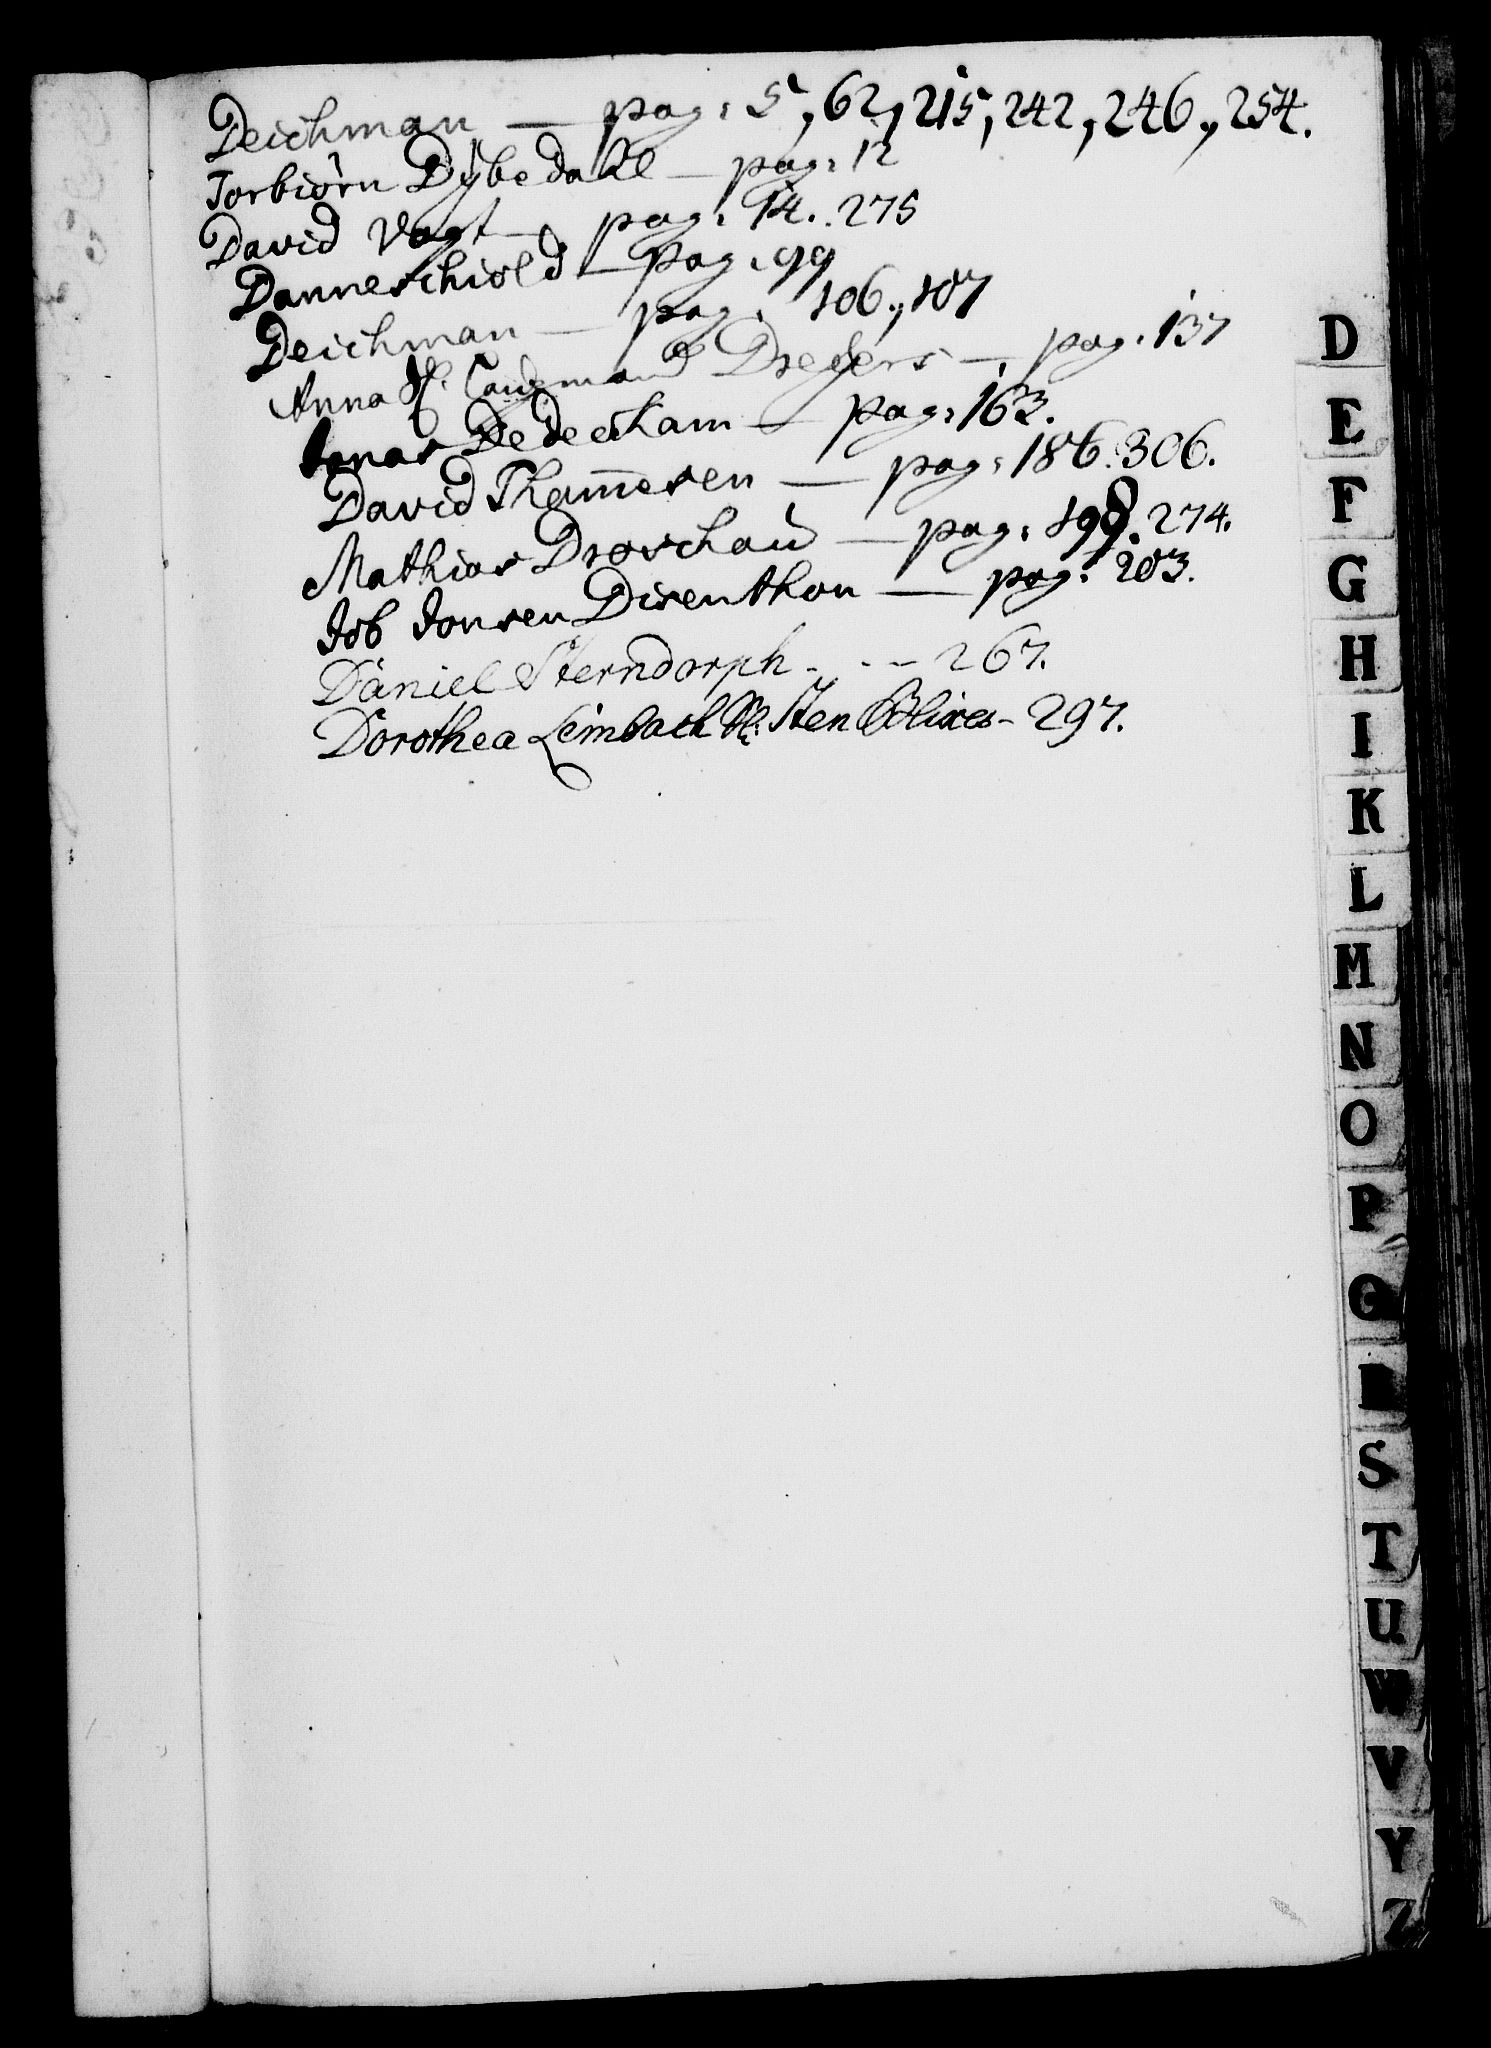 Deichman — pag: 5, 62, 215, 242, 246, 254.
Torbiörn Dÿbedahl — pag: 12
David Vogt — pag: 14. 275
Danneschiold — pag: 99
Deichman — pag: 106., 107
Anna Sl. Laugmand Dreyers — pag. 137
Jonas Dedecham — pag: 163.
David Thom̅esen — pag: 186. 306.
Mathias Droschau — pag: 198. 274.
Job Jonsen Disenthon — pag: 203.
Daniel Sterndorph - - - 267.
Dorothea Leimbach Sl: Sten Blixes - 297.
D
E
F
G
H
I
K
L
M
N
O
P
Q
R
S
T
U
W
V
Y
Z